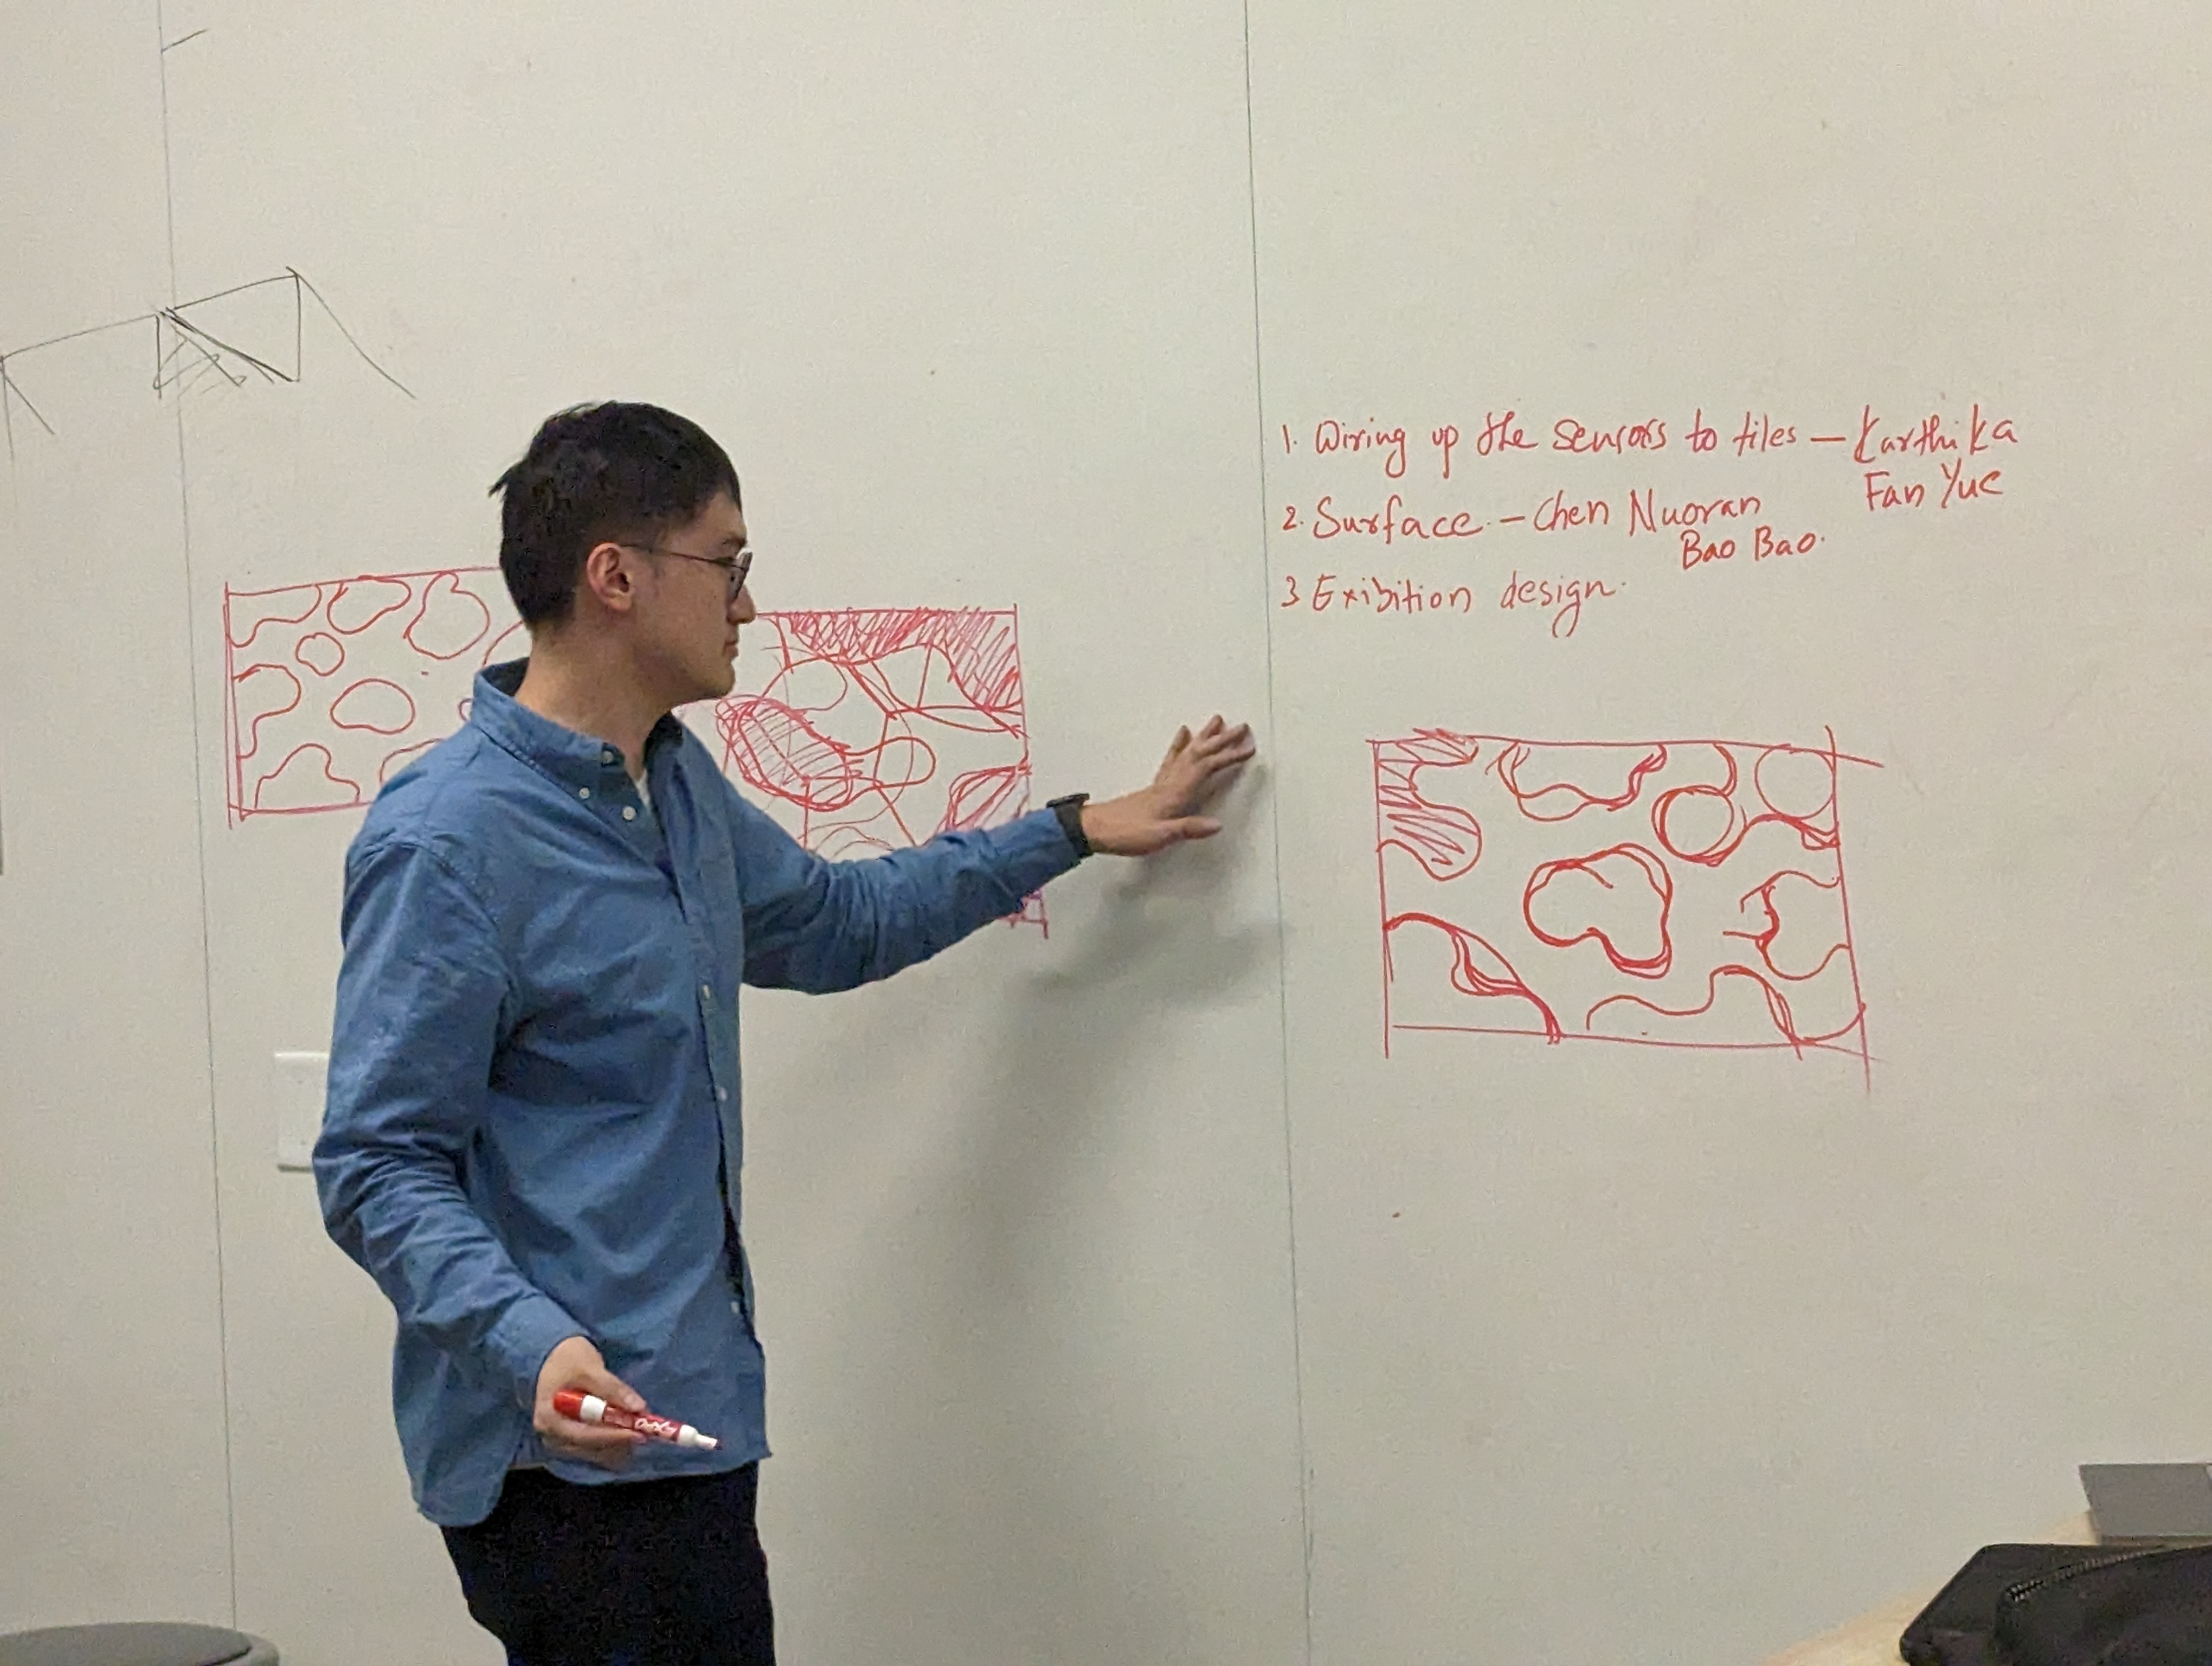 1. Wiring up the sensors to tiles — Karthika
Fan Yue
2. Surface. — Chen Nuoran
Bao Bao.
3 Exibition design.